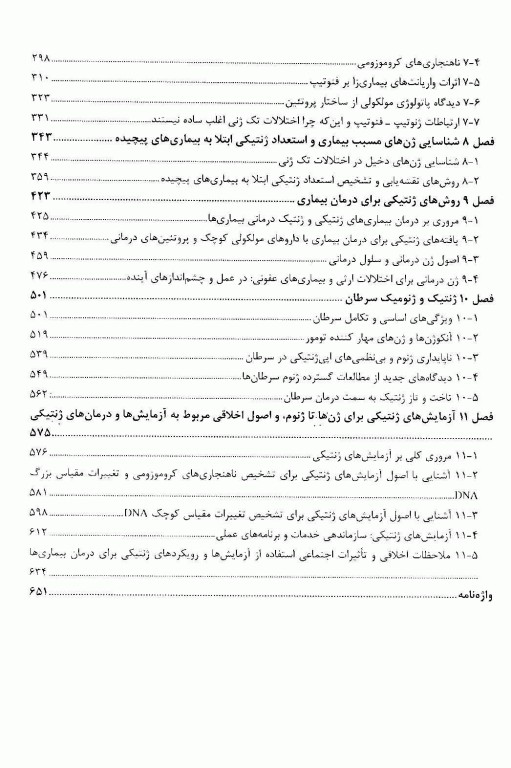 ۷-۴ ناهنجاری‌های کروموزومی ............ ۲۹۸
۷-۵ اثرات واریانت‌های بیماری‌زا بر فنوتیپ ............ ۳۱۰
۷-۶ دیدگاه پاتولوژی مولکولی از ساختار پروتئین ............ ۳۲۳
۷-۷ ارتباطات ژنوتیپ ـ فنوتیپ و این‌که چرا اختلالات تک ژنی اغلب ساده نیستند ............ ۳۳۱
فصل ۸ شناسایی ژن‌های مسبب بیماری و استعداد ژنتیکی ابتلا به بیماری‌های پیچیده ............ ۳۴۳
۸-۱ شناسایی ژن‌های دخیل در اختلالات تک ژنی ............ ۳۴۴
۸-۲ روش‌های نقشه‌یابی و تشخیص استعداد ژنتیکی ابتلا به بیماری‌های پیچیده ............ ۳۵۹
فصل ۹ روش‌های ژنتیکی برای درمان بیماری ............ ۴۲۳
۹-۱ مروری بر درمان بیماری‌های ژنتیکی و ژنتیک درمانی بیماری‌ها ............ ۴۲۵
۹-۲ یافته‌های ژنتیکی برای درمان بیماری با داروهای مولکولی کوچک و پروتئین‌های درمانی ............ ۴۳۴
۹-۳ اصول ژن درمانی و سلول درمانی ............ ۴۵۹
۹-۴ ژن درمانی برای اختلالات ارثی و بیماری‌های عفونی: در عمل و چشم‌اندازهای آینده ............ ۴۷۶
فصل ۱۰ ژنتیک و ژنومیک سرطان ............ ۵۰۱
۱۰-۱ ویژگی‌های اساسی و تکامل سرطان ............ ۵۰۱
۱۰-۲ آنکوژن‌ها و ژن‌های مهار کننده تومور ............ ۵۱۹
۱۰-۳ ناپایداری ژنوم و بی‌نظمی‌های اپی‌ژنتیکی در سرطان ............ ۵۳۹
۱۰-۴ دیدگاه‌های جدید از مطالعات گسترده ژنوم سرطان‌ها ............ ۵۴۹
۱۰-۵ تاخت و تاز ژنتیک به سمت درمان سرطان ............ ۵۶۲
فصل ۱۱ آزمایش‌های ژنتیکی برای ژن‌ها تا ژنوم، و اصول اخلاقی مربوط به آزمایش‌ها و درمان‌های ژنتیکی
............ ۵۷۵
۱۱-۱ مروری کلی بر آزمایش‌های ژنتیکی ............ ۵۷۶
۱۱-۲ آشنایی با اصول آزمایش‌های ژنتیکی برای تشخیص ناهنجاری‌های کروموزومی و تغییرات مقیاس بزرگ
DNA ............ ۵۸۱
۱۱-۳ آشنایی با اصول آزمایش‌های ژنتیکی برای تشخیص تغییرات مقیاس کوچک DNA ............ ۵۹۸
۱۱-۴ آزمایش‌های ژنتیکی: سازماندهی خدمات و برنامه‌های عملی ............ ۶۱۲
۱۱-۵ ملاحظات اخلاقی و تأثیرات اجتماعی استفاده از آزمایش‌ها و رویکردهای ژنتیکی برای درمان بیماری‌ها
............ ۶۳۴
واژه‌نامه ............ ۶۵۱